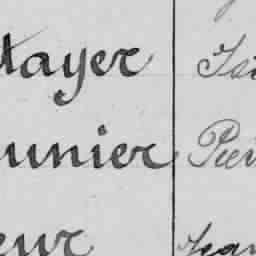 tayer Ja
unier Pier
eur Jean